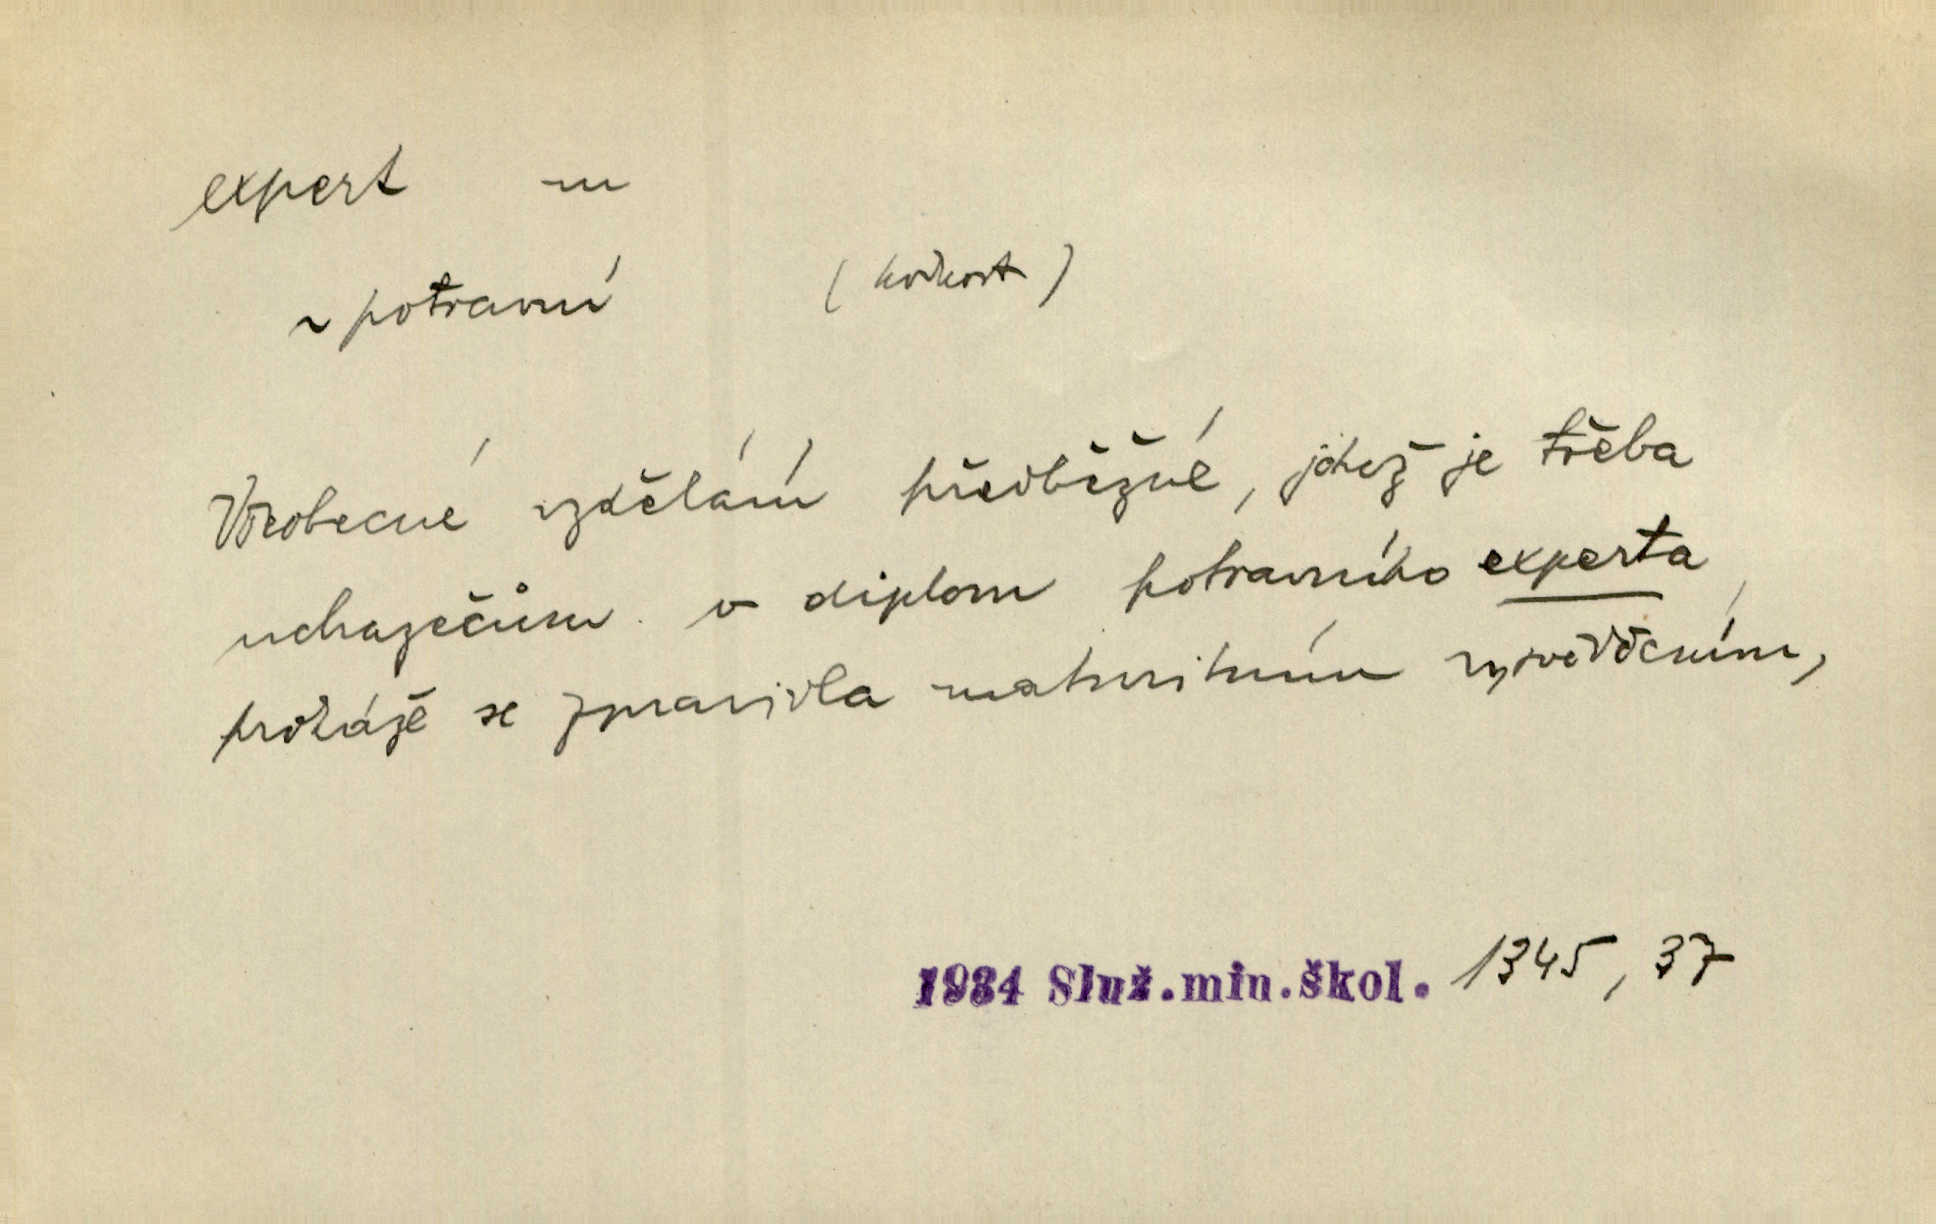 expert m
~ potravní
Všeobecné vzdělání předběžné, jehož je třeba
uchazečům o diplom potravního experta
prokáže se zpravidla maturitním vysvědčením,
1934 Služ.min.škol. 1345, 37